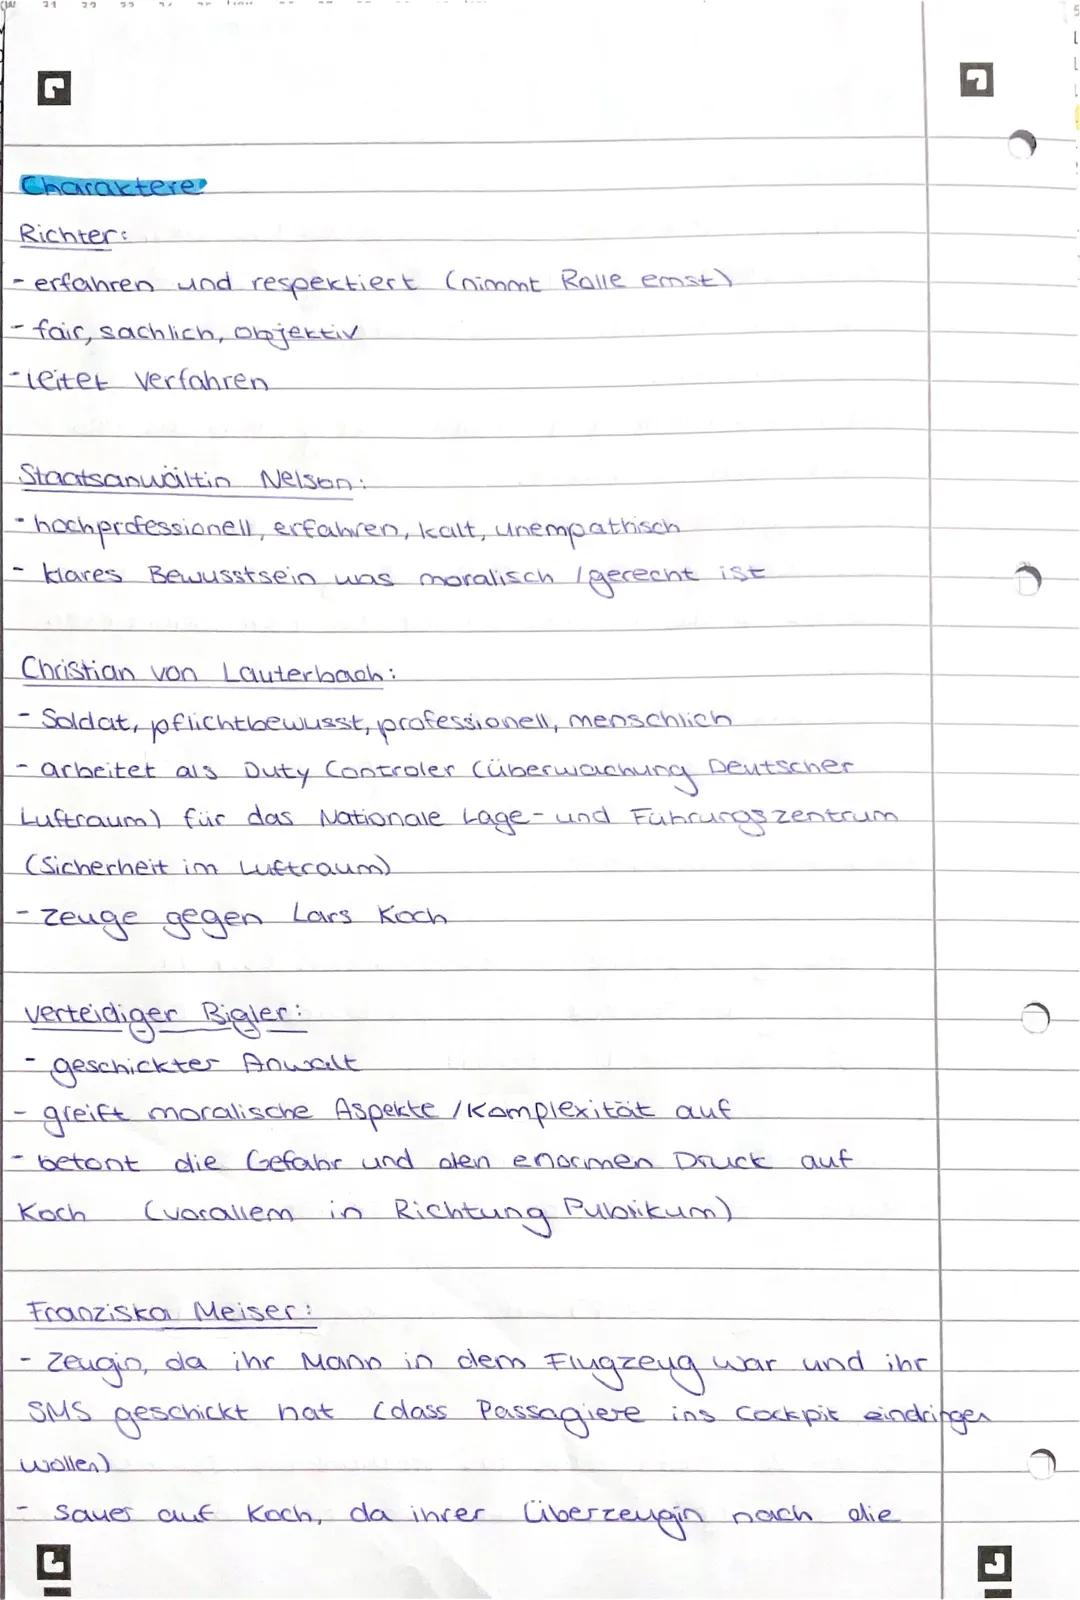 Charaktere
Richter:
- erfahren und respektiert (nimmt Rolle ernst)
- fair, sachlich, objektiv
- leitet Verfahren
Staatsanwältin Nelson:
- hochprofessionell, erfahren, kalt, unempathisch
- klares Bewusstsein was moralisch / gerecht ist
Christian von Lauterbach:
- Soldat, pflichtbewusst, professionell, menschlich
- arbeitet als Duty Controler (überwachung Deutscher
Luftraum) für das Nationale Lage- und Führungszentrum
(Sicherheit im Luftraum)
- Zeuge gegen Lars Koch
Verteidiger Bigler:
- geschickter Anwalt
- greift moralische Aspekte / Komplexität auf
- betont die Gefahr und den enormen Druck auf
Koch (vorallem in Richtung Publikum)
Franziska Meiser:
- Zeugin, da ihr Mann in dem Flugzeug war und ihr
SMS geschickt hat (dass Passagiere ins Cockpit eindringen
wollen)
- sauer auf Koch, da ihrer Überzeugin nach die